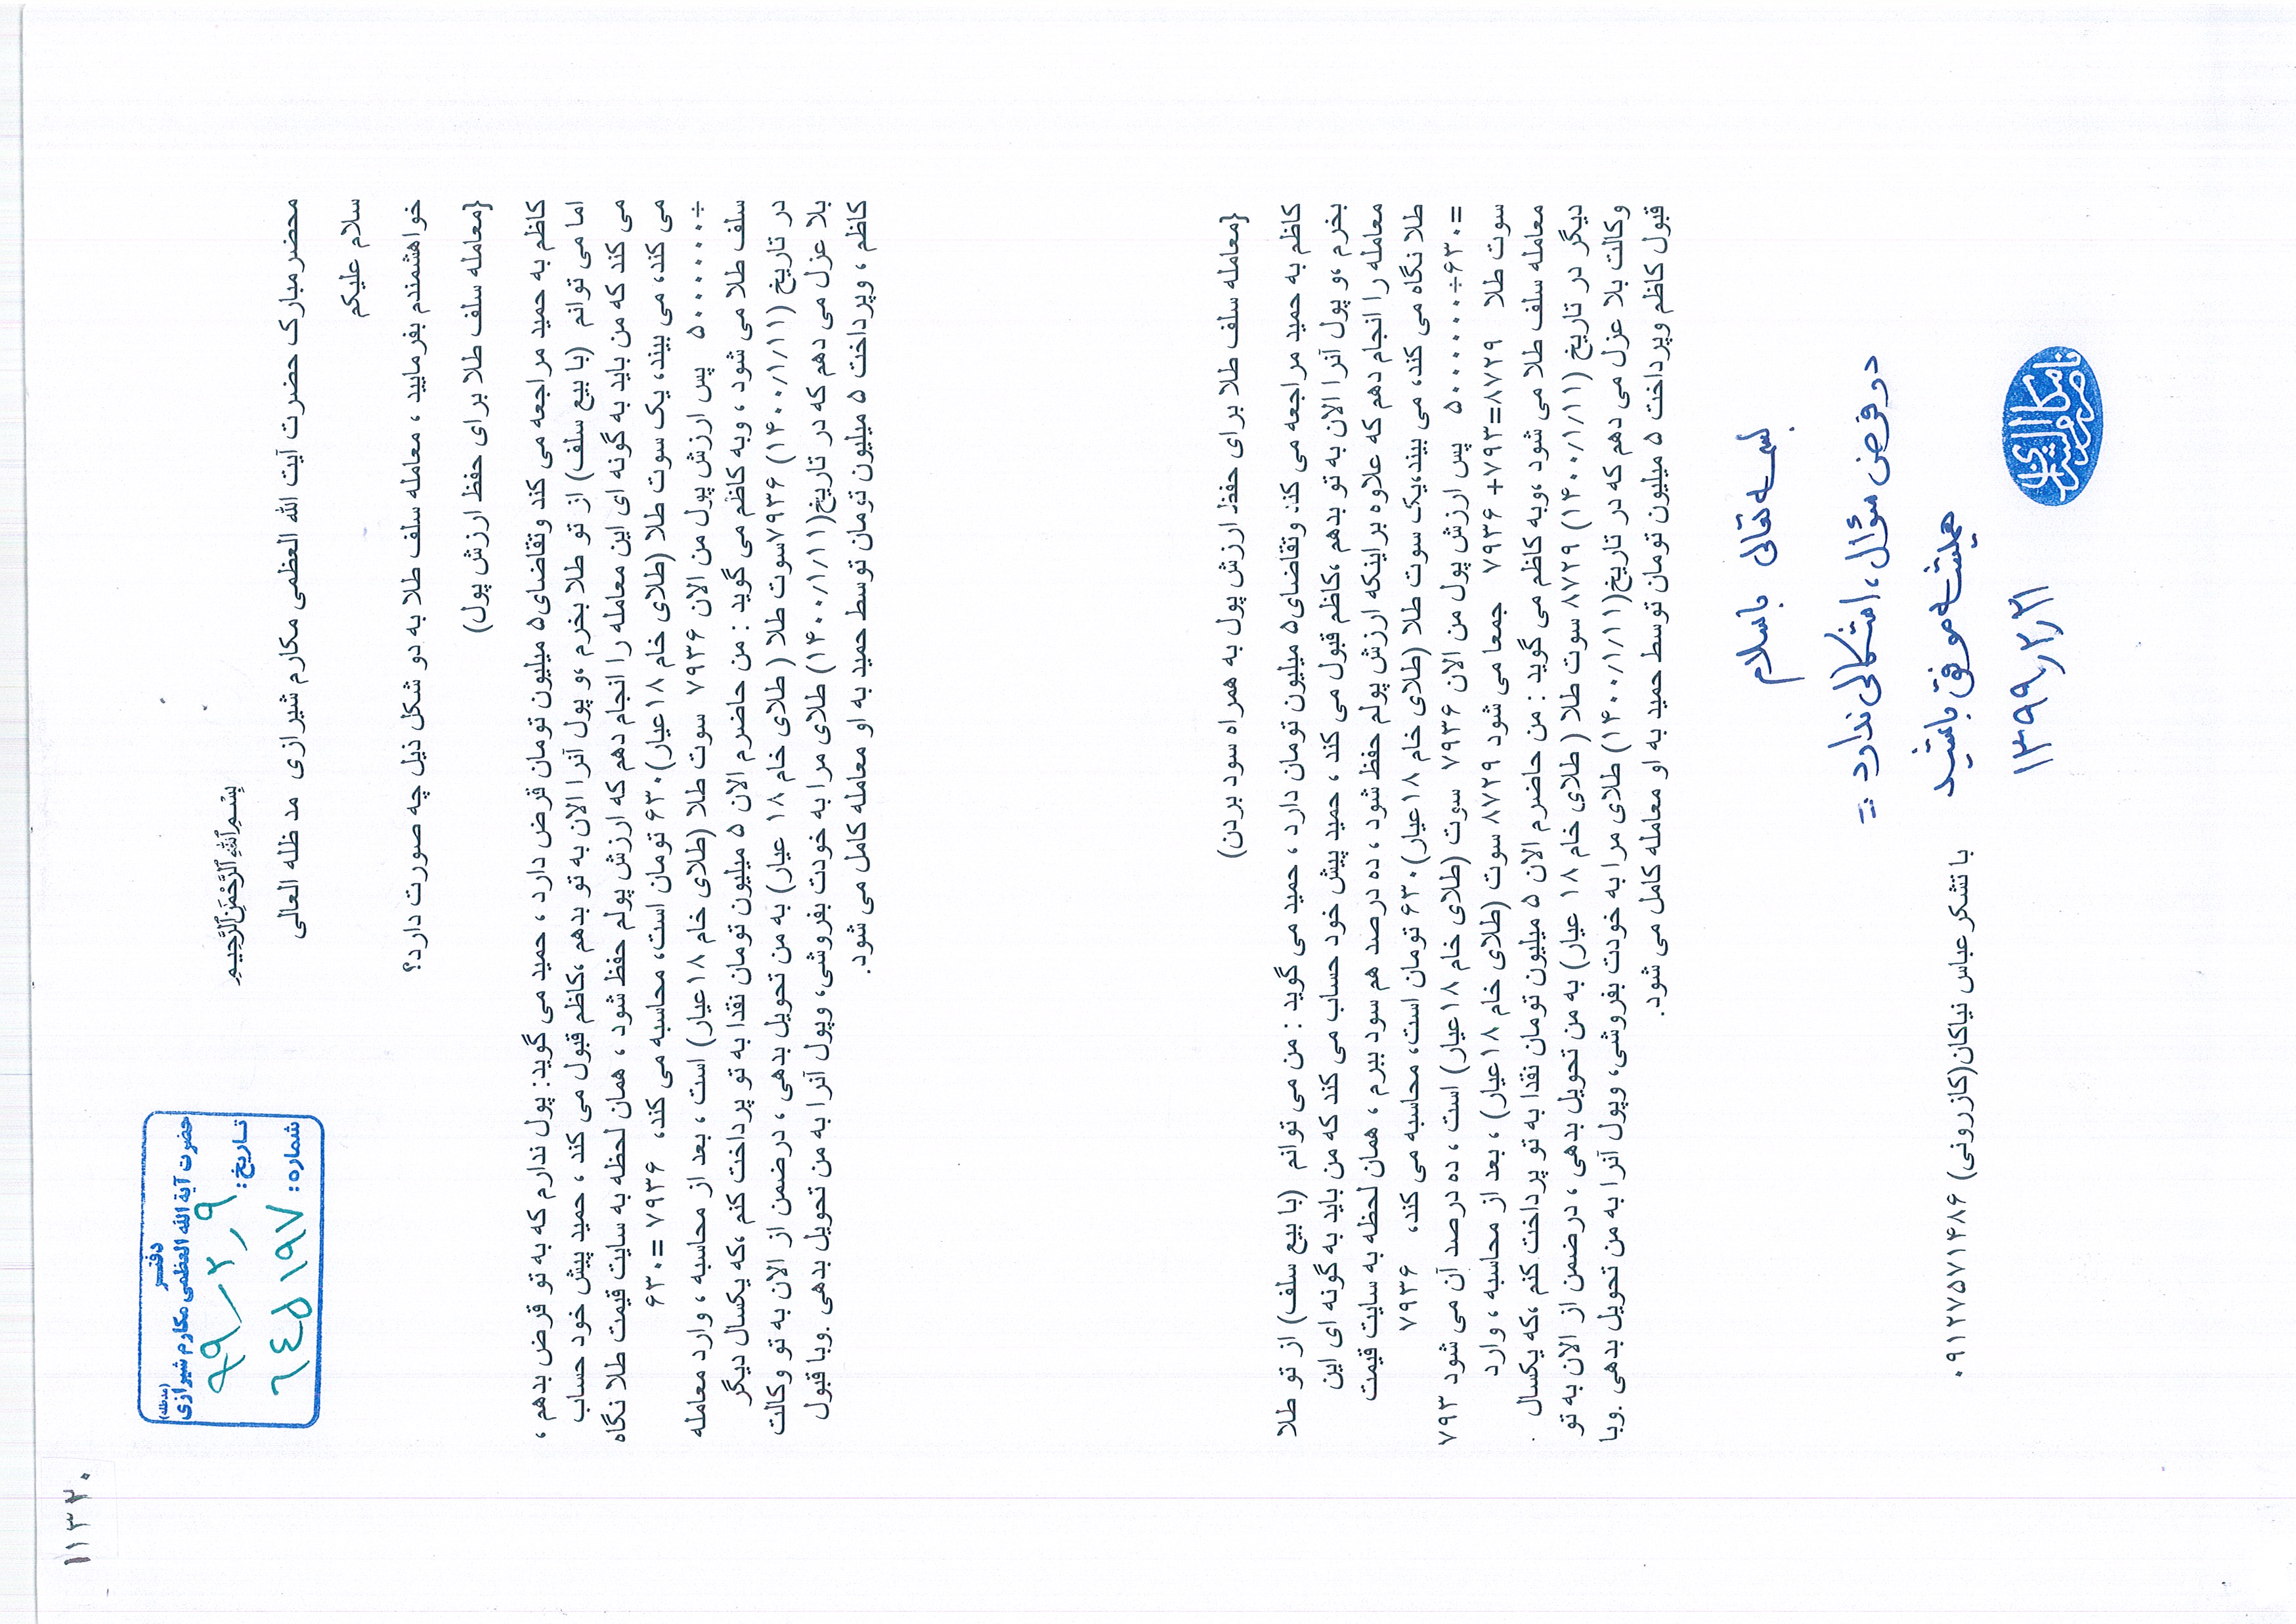 ۱۱۳۲۰
دفتـــر
حضرت آیة الله العظمی مکارم شیرازی (مدظله)
تاریخ: ۹۹/۲/۹
شماره: ٦٤٥١٩٧
بِسْمِ اللهِ الرَّحْمٰنِ الرَّحِیمِ
محضر مبارک حضرت آیت الله العظمی مکارم شیرازی مد ظله العالی
سلام علیکم
خواهشمندم بفرمایید ، معامله سلف طلا به دو شکل ذیل چه صورت دارد؟
{معامله سلف طلا برای حفظ ارزش پول)
کاظم به حمید مراجعه می کند وتقاضای۵ میلیون تومان قرض دارد ، حمید می گوید: پول ندارم که به تو قرض بدهم ،
اما می توانم (با بیع سلف) از تو طلا بخرم ،و پول آنرا الان به تو بدهم ،کاظم قبول می کند ، حمید پیش خود حساب
می کند که من باید به گونه ای این معامله را انجام دهم که ارزش پولم حفظ شود ، همان لحظه به سایت قیمت طلا نگاه
می کند، می بیند، یک سوت طلا (طلای خام ۱۸عیار)۶۳۰ تومان است، محاسبه می کند، ۷۹۳۶ =۶۳۰
÷۵۰۰۰۰۰۰ پس ارزش پول من الان ۷۹۳۶ سوت طلا (طلای خام ۱۸عیار) است ، بعد از محاسبه ، وارد معامله
سلف طلا می شود ، وبه کاظم می گوید : من حاضرم الان ۵ میلیون تومان نقدا به تو پرداخت کنم ،که یکسال دیگر
در تاریخ (۱۴۰۰/۱/۱۱) ۷۹۳۶سوت طلا ( طلای خام ۱۸ عیار) به من تحویل بدهی ، درضمن از الان به تو وکالت
بلا عزل می دهم که در تاریخ(۱۴۰۰/۱/۱۱) طلای مرا به خودت بفروشی، وپول آنرا به من تحویل بدهی .وبا قبول
کاظم ، وپرداخت ۵ میلیون تومان توسط حمید به او معامله کامل می شود.
{معامله سلف طلا برای حفظ ارزش پول به همراه سود بردن)
کاظم به حمید مراجعه می کند وتقاضای۵ میلیون تومان دارد ، حمید می گوید : من می توانم (با بیع سلف) از تو طلا
بخرم ،و پول آنرا الان به تو بدهم ،کاظم قبول می کند ، حمید پیش خود حساب می کند که من باید به گونه ای این
معامله را انجام دهم که علاوه براینکه ارزش پولم حفظ شود ، ده درصد هم سود ببرم ، همان لحظه به سایت قیمت
طلا نگاه می کند، می بیند،یک سوت طلا (طلای خام ۱۸عیار)۶۳۰ تومان است، محاسبه می کند، ۷۹۳۶
=۶۳۰÷۵۰۰۰۰۰۰ پس ارزش پول من الان ۷۹۳۶ سوت (طلای خام ۱۸عیار) است ، ده درصد آن می شود ۷۹۳
سوت طلا ۸۷۲۹=۷۹۳+ ۷۹۳۶ جمعا می شود ۸۷۲۹ سوت (طلای خام ۱۸عیار) ، بعد از محاسبه ، وارد
معامله سلف طلا می شود ،وبه کاظم می گوید : من حاضرم الان ۵ میلیون تومان نقدا به تو پرداخت کنم ،که یکسال
دیگر در تاریخ (۱۴۰۰/۱/۱۱) ۸۷۲۹ سوت طلا ( طلای خام ۱۸ عیار) به من تحویل بدهی ، درضمن از الان به تو
وکالت بلا عزل می دهم که در تاریخ(۱۴۰۰/۱/۱۱) طلای مرا به خودت بفروشی، وپول آنرا به من تحویل بدهی .وبا
قبول کاظم وپرداخت ۵ میلیون تومان توسط حمید به او معامله کامل می شود.
بسمه تعالی با سلام
در فرض سؤال، اشکالی ندارد =
همیشه موفق باشید
۱۳۹۹/۲/۲۱
با تشکر عباس نیاکان(کازرونی) ۰۹۱۲۷۵۷۱۴۸۶
ناصر مکارم شیرازی